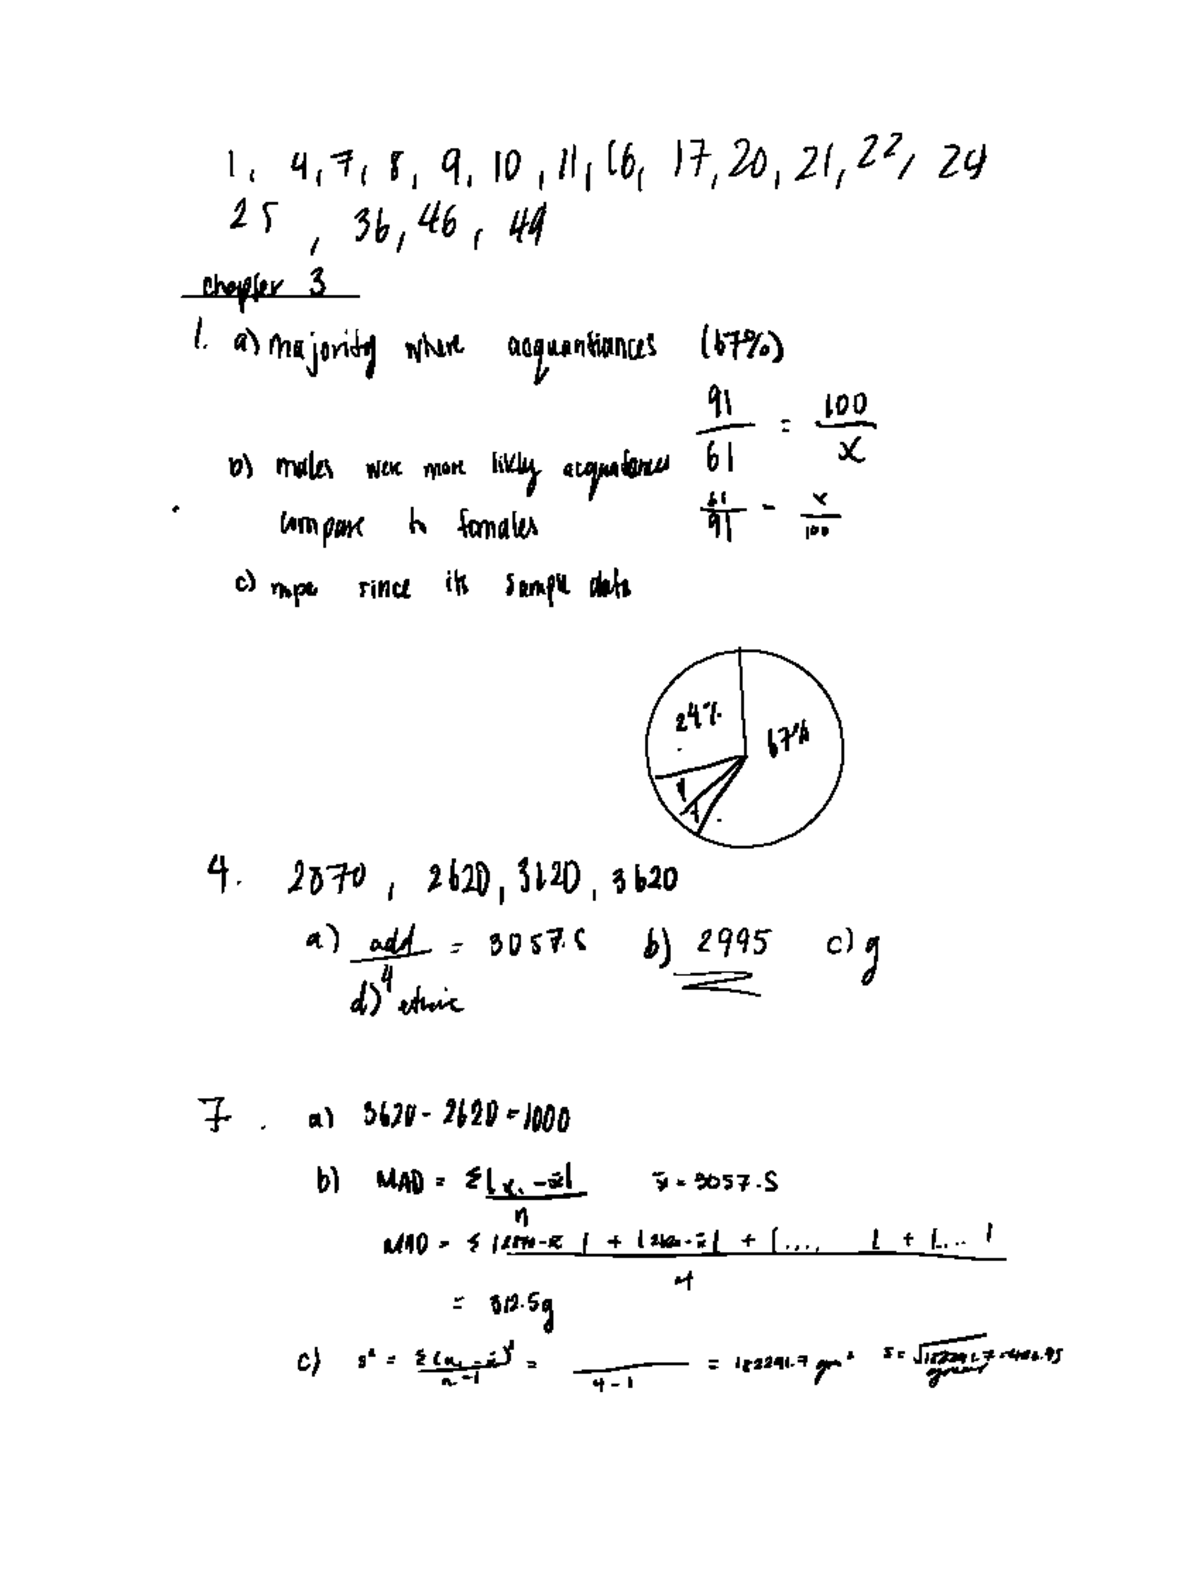 1, 4, 7, 8, 9, 10, 11, 16, 17, 20, 21, 22, 24
25, 36, 46, 49
chapter 3
1. a) majority where acquantiances (67%)
91/61 = 100/x
b) males were more likly acquatances
compare to females
61/91 = x/100
c) since its sample data
24% 67%
4. 2870, 2620, 3120, 3620
a) add/4 = 3057.5 b) 2995 c) g
d) ethnic
7. a) 3620 - 2620 = 1000
b) MAD = Σ|xᵢ - x̄|/n x̄ = 3057.5
MAD = Σ|2870 - x̄| + |2620 - x̄| + |.... | + |... |/4
= 312.5g
c) s² = Σ(xᵢ - x̄)²/n-1 = /4-1 = 182291.7 gm² s = √182291.7 = 426.95